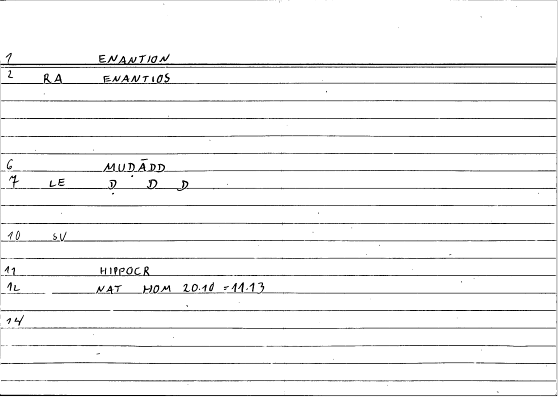 1 ENANTION
2 RA ENANTIOS
6 MUḌĀDD
7 LE Ḍ D D
10 SV
11 HIPPOCR
12 NAT HOM 20.10 = 11.13
14